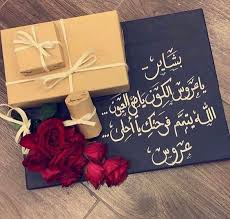 بشاير ...
يا عروس الكون يا ضي العيون ...
الله يتمم فرحتك يا أحلى ...
عروس